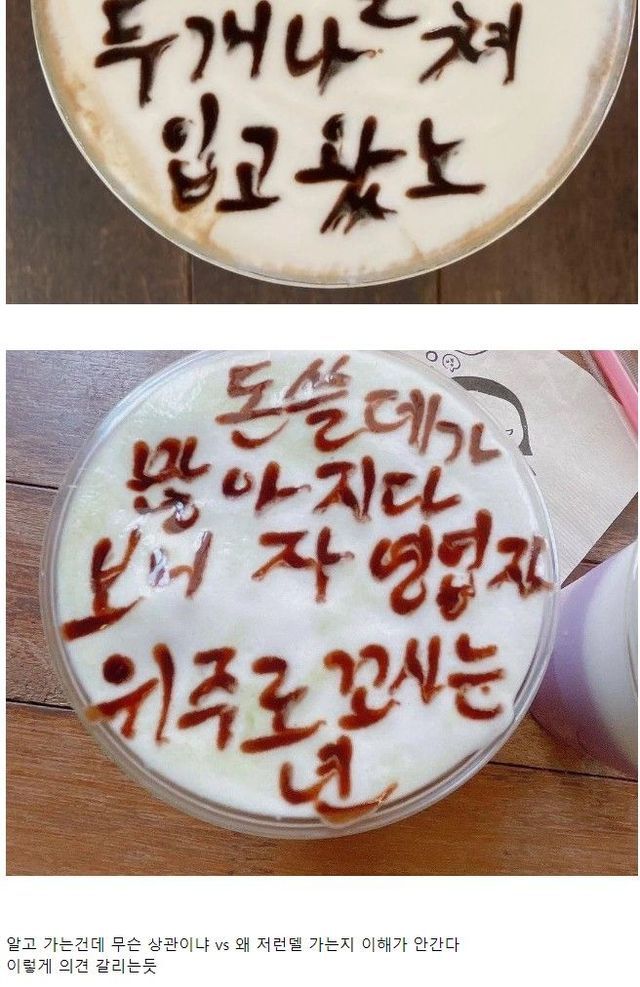 두개나 쳐
입고 왔노
돈쓸데가
많아지다
보니 자영업자
위주로 꼬시는
년
알고 가는건데 무슨 상관이냐 vs 왜 저런델 가는지 이해가 안간다
이렇게 의견 갈리는듯